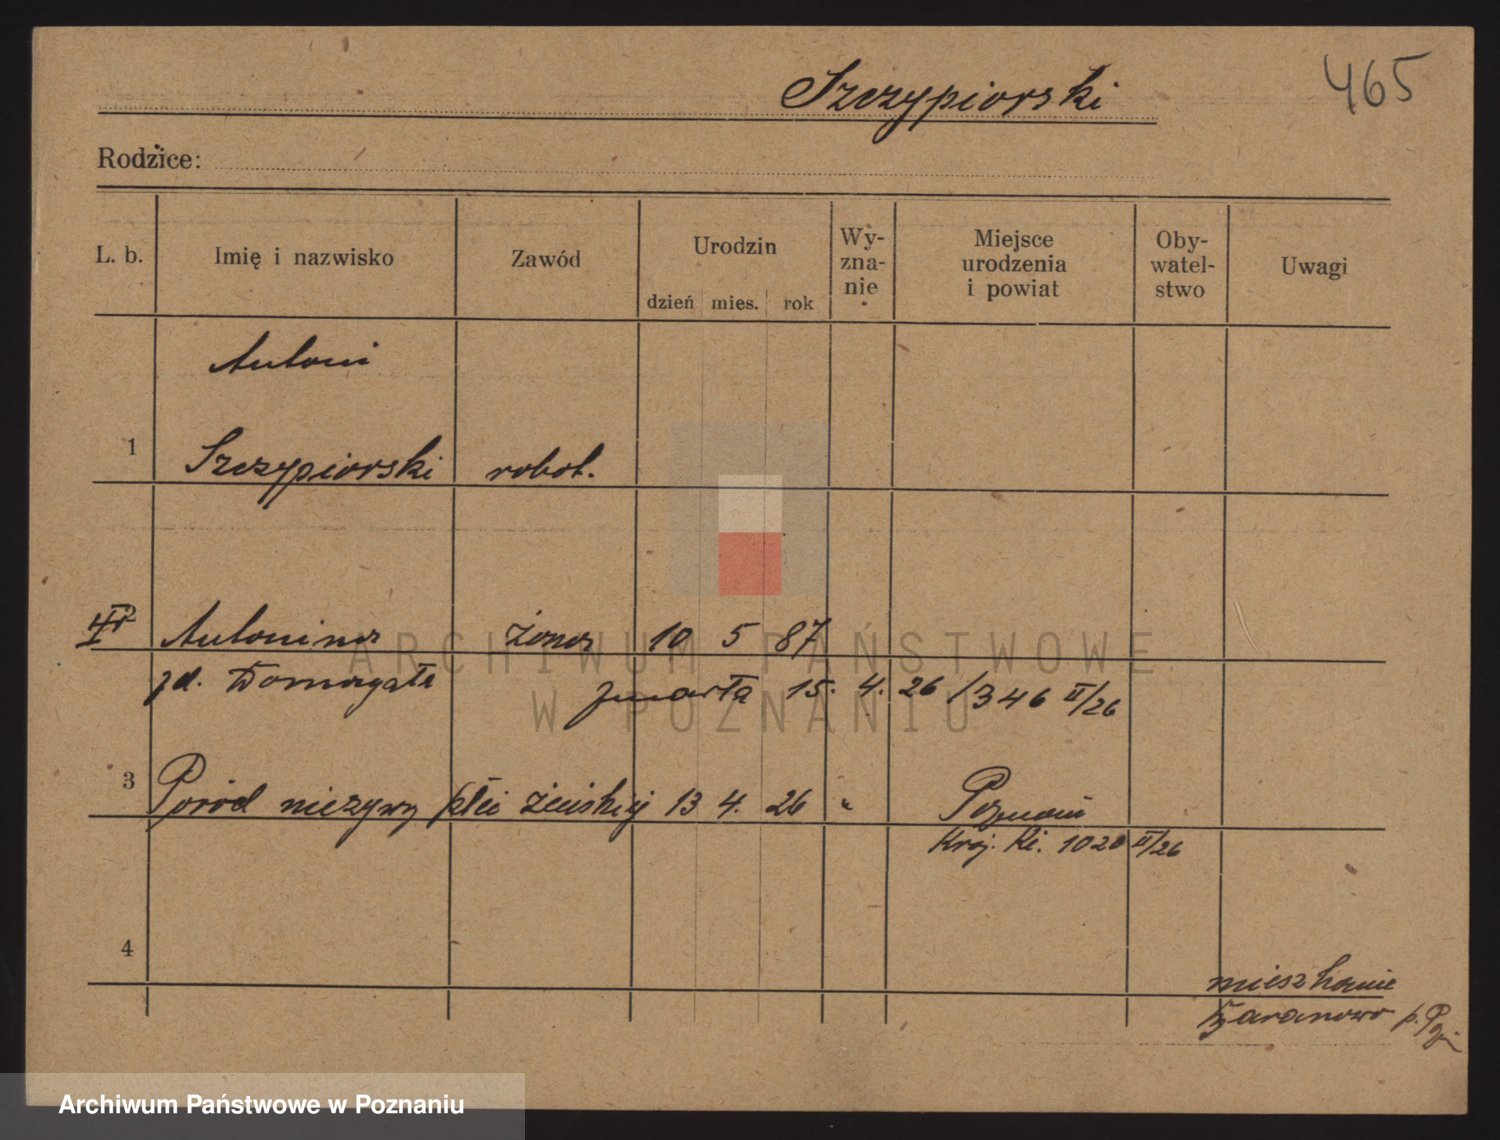 Szczypiorski
465
Rodzice:
L. b. Imię i nazwisko Zawód Urodzin dzień mies. rok Wy-zna-nie Miejsce urodzenia i powiat Oby-watel-stwo Uwagi
Antoni
1 Szczypiorski robot.
2 Antonina żona 10 5 87
zd. Domagała zmarła 15. 4. 26 /346 II/26
3 Poród nieżywy płci żeńskiej 13 4. 26 " Poznań
Kraj. Kl. 1020 II/26
4
mieszkanie
Baranowo p. Pzń
ARCHIWUM PAŃSTWOWE
W POZNANIU
Archiwum Państwowe w Poznaniu